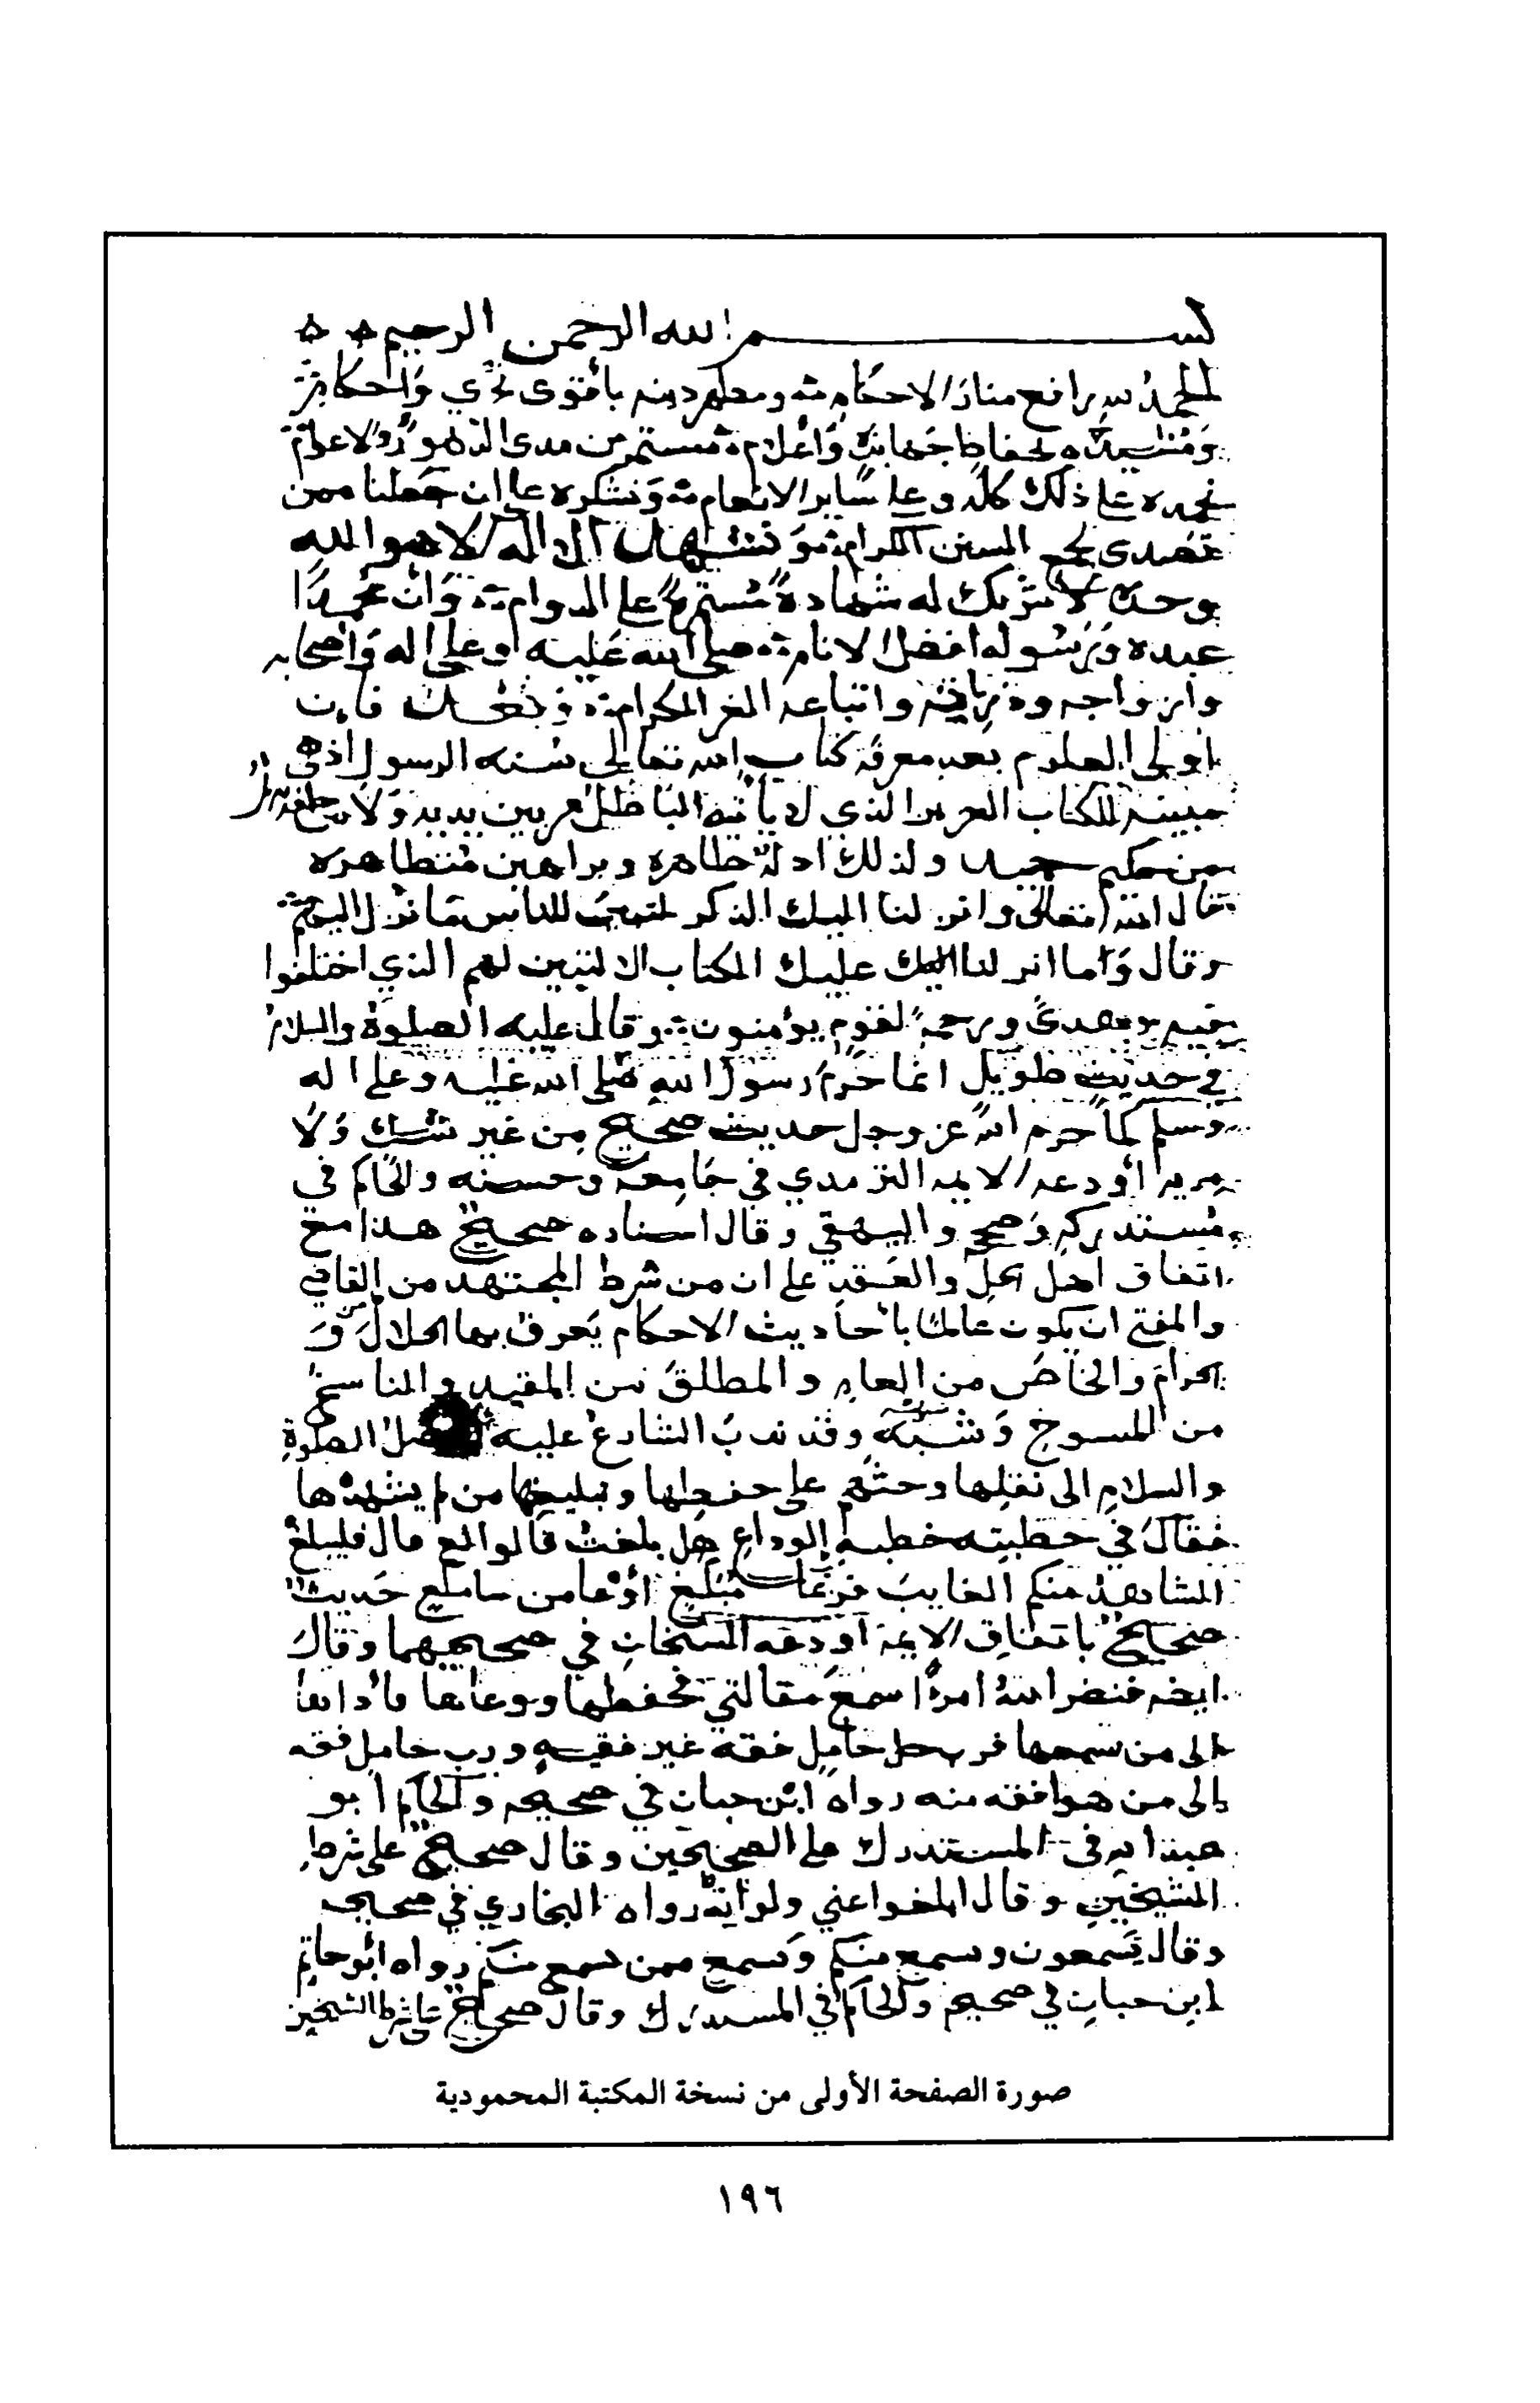 بسم الله الرحمن الرحيم
الحمد لله رافع منار الاحكام ومظهر دينه باقوى عرى واحكام
ومشيده بحفاظ جهابذة واعلام مستمرين مدى الدهور والاعوام
نحمده على ذلك كله وعلى ساير الانعام ونشكره على ان جعلنا ممن
تصدى لجمع السنن الكرام ونشهد ان لا اله الا هو الله
وحده لا شريك له شهادة مستمرة على الدوام وان محمدا
عبده ورسوله افضل الانام صلى الله عليه وعلى اله واصحابه
وازواجه وذرياته واتباعه الغر الكرام وبعد فان
اولى العلوم بعد معرفة كتاب الله تعالى سنه الرسول اذ هي
مبينة للكتاب العزيز الذي لا ياتيه الباطل من بين يديه ولا من خلفه تنزيل
من حكيم حميد ولذلك ادلة ظاهره وبراهين متظاهره
قال الله تعالى وانزلنا اليك الذكر لتبين للناس ما نزل اليهم
وقال وما انزلنا اليك عليك الكتاب الا لتبين لهم الذي اختلفوا
فيه وهدى ورحمة لقوم يؤمنون وقال عليه الصلوة والسلام
في حديث طويل انما حرم رسول الله صلى الله عليه وعلى اله
وسلم كما حرم الله عز وجل حديث صحيح من غير شك ولا
مريه أودعه الايمه الترمدي في جامعه وحسنه والحاكم في
مستدركه وصححه والبيهقي وقال اسناده صحيح هذا مع
اتفاق اهل الحل والعقد على ان من شرط المجتهد من القاضي
والمفتي ان يكون عالما بأحاديث الاحكام يعرف بها الحلال من
الحرام والخاص من العام والمطلق من المقيد والناسخ
من المنسوخ وشبهه وقد ندب الشارع عليه افضل الصلوة
والسلام الى نقلها وحثهم على حفظها وتبليغها من لم يشهدها
فقال في خطبته خطبة الوداع هل بلغت قالوا نعم قال فليبلغ
الشاهد منكم الغايب فرب مبلغ أوعا من سامع حديث
صحيح باتفاق الايمة أودعه الشيخان في صحيحيهما وقال
ايضا فنضر الله امرأ سمع مقالتي فحفظها ووعاها فأداها
الى من سمعها فرب حامل فقه غير فقيه ورب حامل فقه
الى من هو افقه منه رواه ابن حبان في صحيحه والحاكم ابو
عبد الله في المستدرك على الصحيحين وقال صحيح على شرط
الشيخين وقال بلغوا عني ولو اية رواه البخاري في صحيحه
وقال تسمعون وسمع منكم وسمع ممن سمع منكم رواه ابو حاتم
ابن حبان في صحيحه والحاكم في المستدرك وقال صحيح على شرط الشيخين
صورة الصفحة الأولى من نسخة المكتبة المحمودية
١٩٦